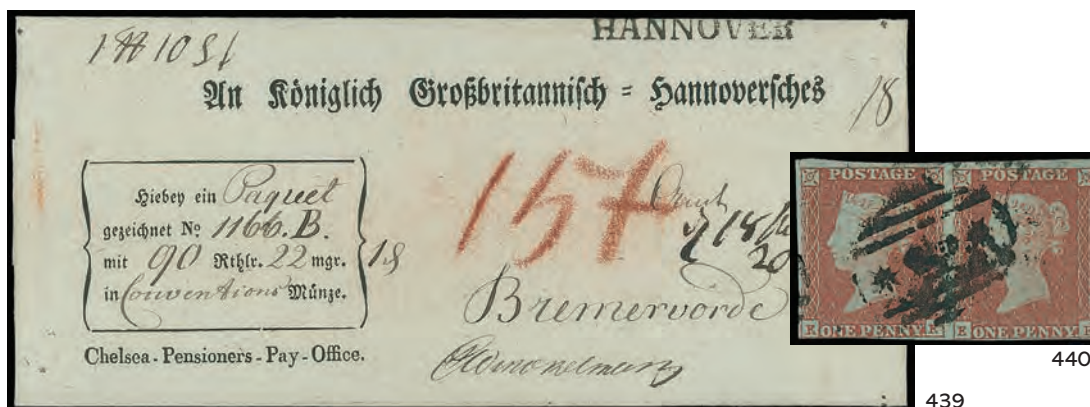 HANNOVER
An Königlich Großbritannisch = Hannoversches
18
Hiebey ein Paquet
gezeichnet No 1166. B.
mit 90 Rthlr. 22 mgr.
in Conventions Münze.
18
157
Amt
Bremervörde
Chelsea-Pensioners-Pay-Office.
POSTAGE POSTAGE
ONE PENNY. ONE PENNY.
440
439